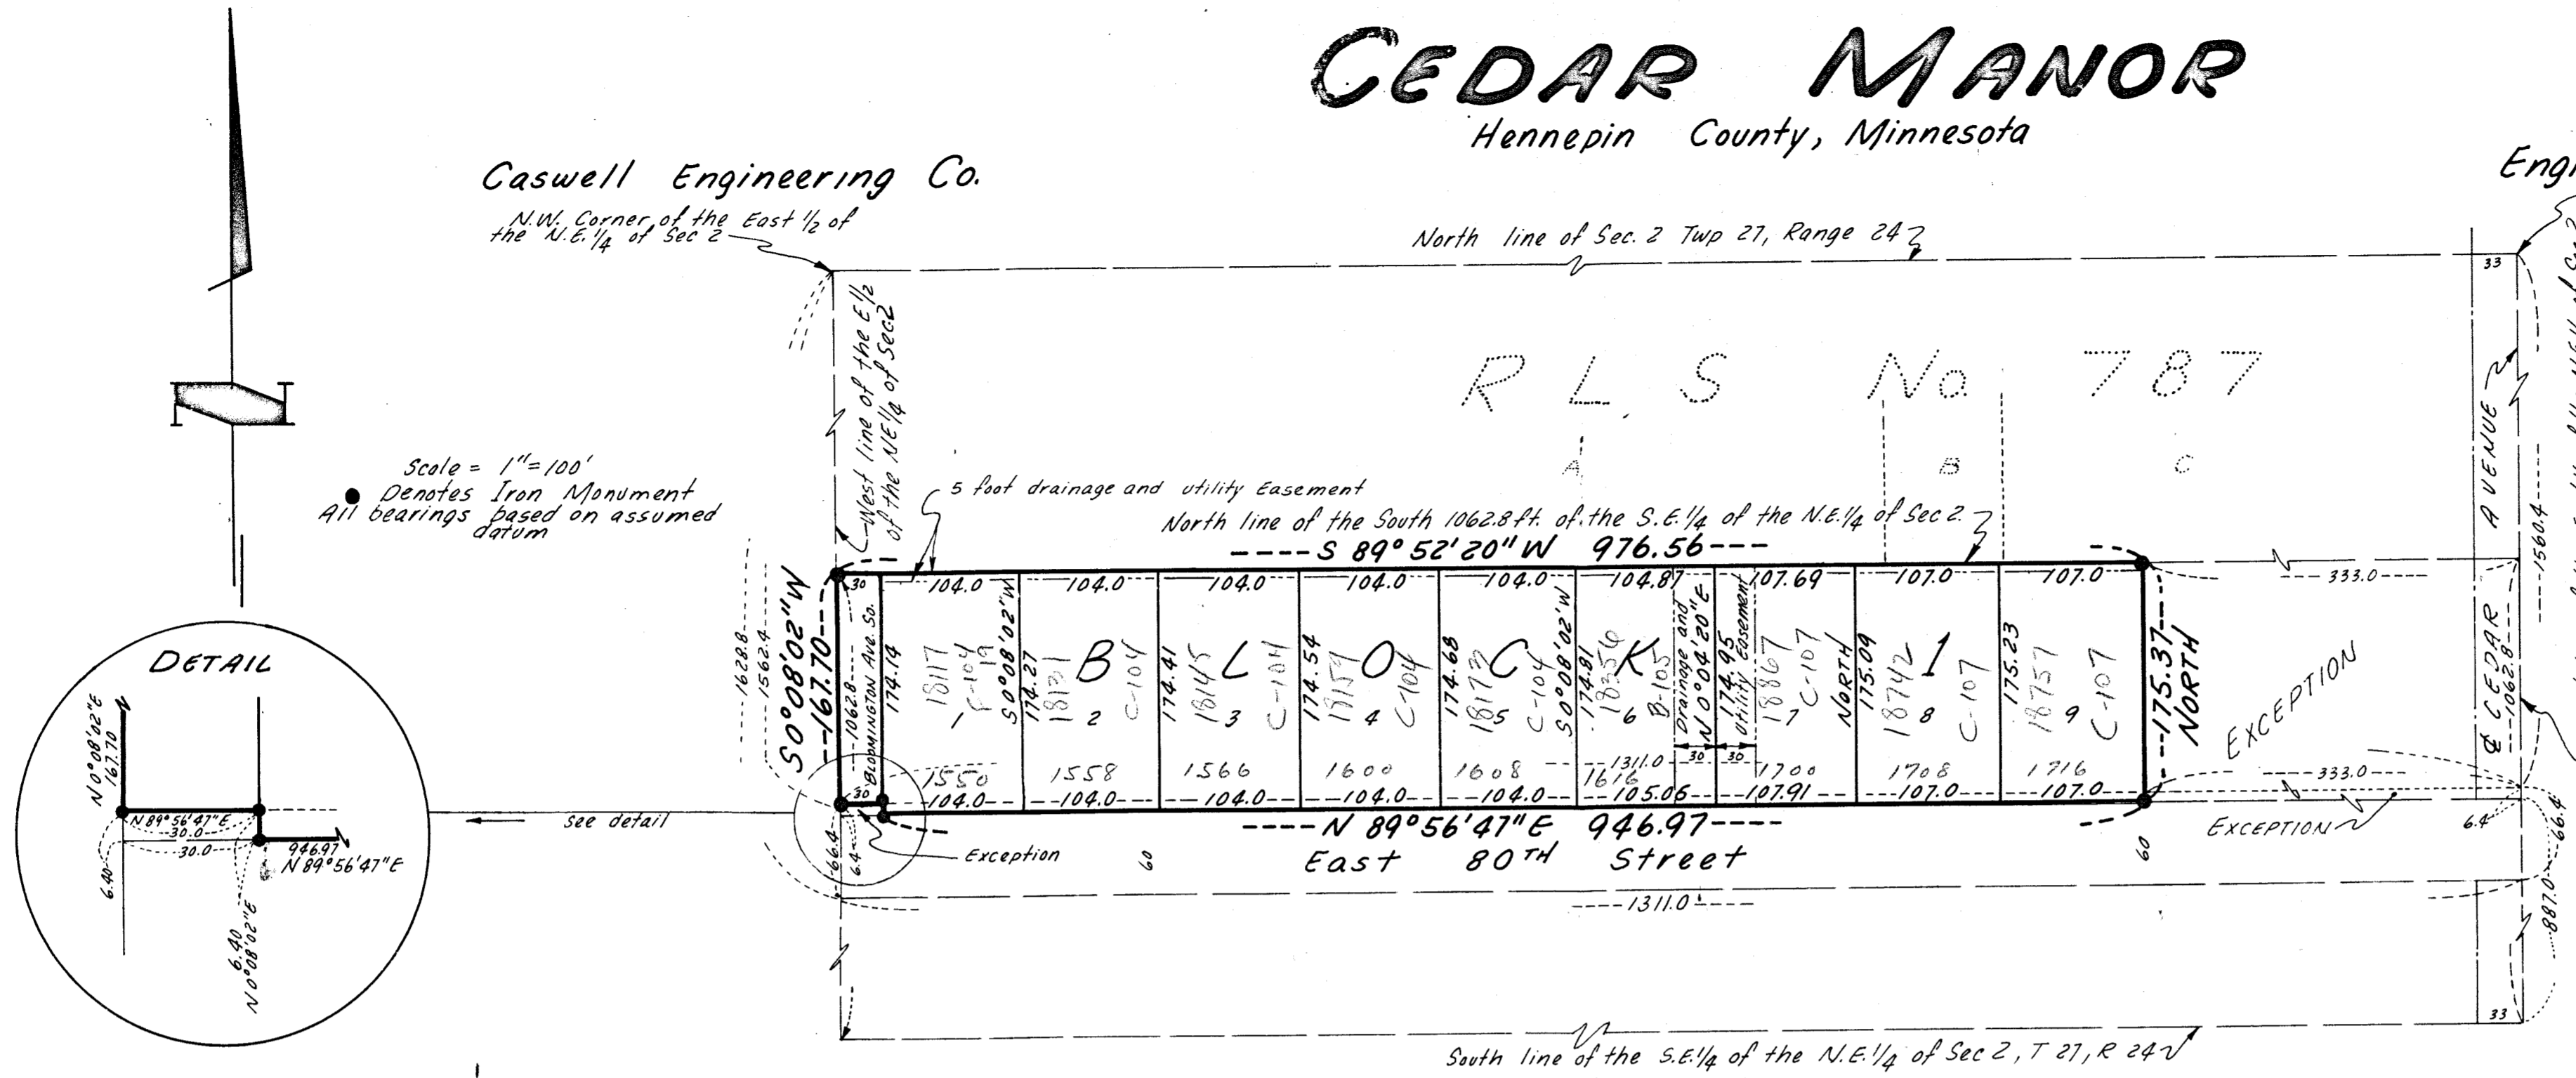 CEDAR MANOR
Hennepin County, Minnesota
Caswell Engineering Co.
N.W. Corner of the East 1/2 of
the N.E. 1/4 of Sec 2
North line of Sec. 2 Twp 27, Range 24
33
West line of the E 1/2
of the NE 1/4 of Sec 2
R L S No 787
A
B
C
Scale = 1"=100'
Denotes Iron Monument
All bearings based on assumed
datum
5 foot drainage and utility Easement
North line of the South 1062.8 ft. of the S.E. 1/4 of the N.E. 1/4 of Sec 2
S 89° 52' 20" W 976.56
30
104.0
104.0
104.0
104.0
104.0
104.87
107.69
107.0
107.0
333.0
1628.8
1562.4
S 0° 08' 02" W
167.70
1062.8
BLOOMINGTON AVE. SO.
174.14
18117
F-104
19
1
S 0° 08' 02" W
174.27
18131
2
C-104
174.41
18145
3
C-104
174.54
18159
4
C-104
174.68
18173
5
C-104
S 0° 08' 02" W
174.81
18356
6
B-105
Drainage and
N 0° 04' 20" E
174.95
Utility Easement
18867
7
C-107
NORTH
175.09
18742
8
C-107
175.23
18757
9
C-107
BLOCK 1
175.37
NORTH
EXCEPTION
₵ CEDAR AVENUE
1062.8
1560.4
1311.0
30
30
1550
1558
1566
1600
1608
1616
1700
1708
1716
333.0
30
104.0
104.0
104.0
104.0
104.0
105.06
107.91
107.0
107.0
N 89° 56' 47" E 946.97
EXCEPTION
6.4
66.4
see detail
66.4
6.4
Exception
60
East 80TH Street
60
1311.0
887.0
33
South line of the S.E. 1/4 of the N.E. 1/4 of Sec 2, T 27, R 24
DETAIL
N 0° 08' 02" E
167.70
N 89° 56' 47" E
30.0
30.0
946.97
N 89° 56' 47" E
6.40
6.40
N 0° 08' 02" E